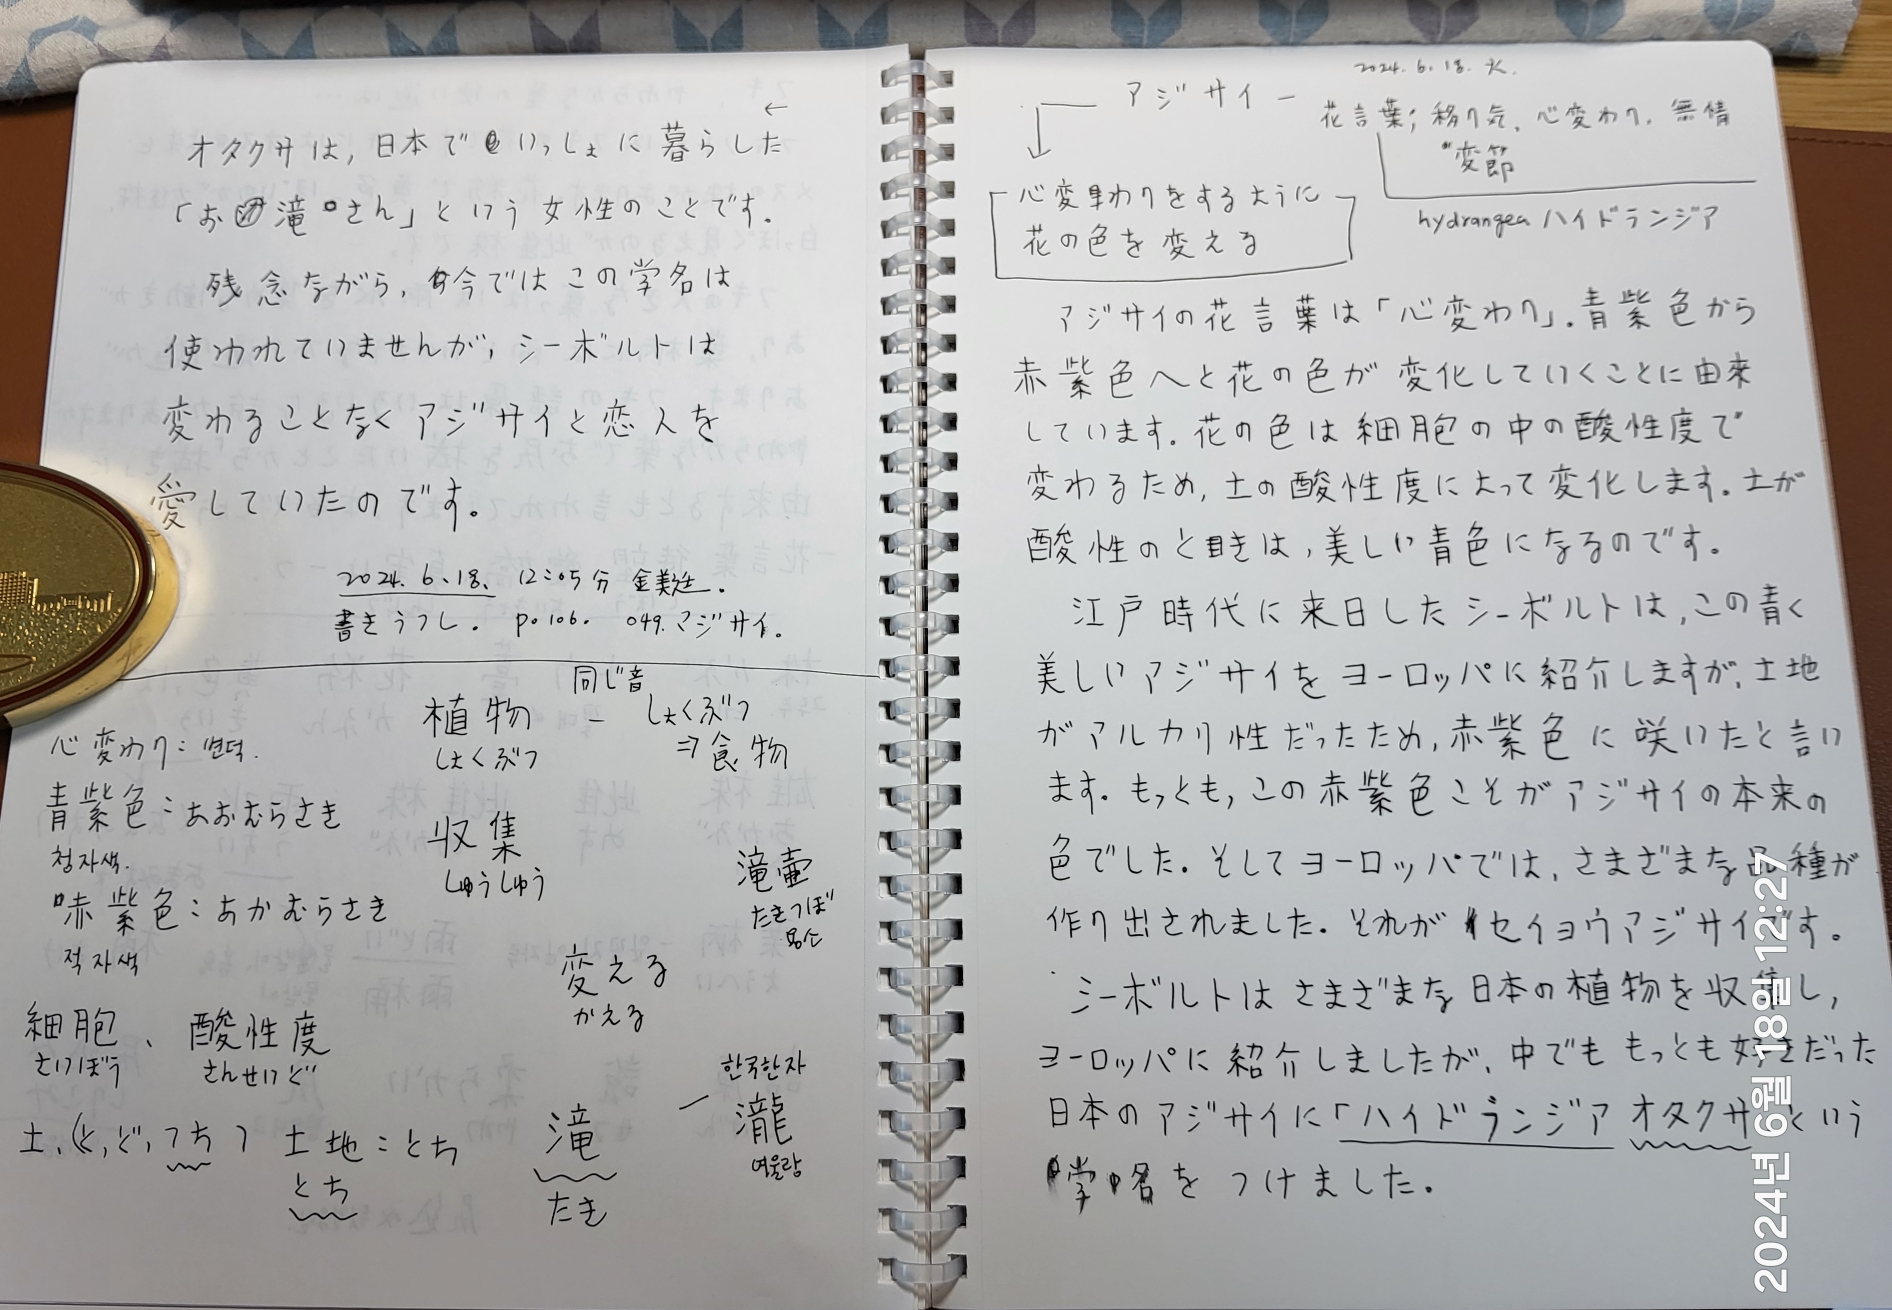 2024. 6. 18. 火.
アジサイ ー
花言葉; 移り気、心変わり、無情
変節
hydrangea ハイドランジア
心変わりをするように
花の色を変える
アジサイの花言葉は「心変わり」。青紫色から
赤紫色へと花の色が変化していくことに由来
しています。花の色は細胞の中の酸性度で
変わるため、土の酸性度によって変化します。土が
酸性のときは、美しい青色になるのです。
江戸時代に来日したシーボルトは、この青く
美しいアジサイをヨーロッパに紹介しますが、土地
がアルカリ性だったため、赤紫色に咲いたと言い
ます。もっとも、この赤紫色こそがアジサイの本来の
色でした。そしてヨーロッパでは、さまざまな品種が
作り出されました。それがセイヨウアジサイです。
シーボルトはさまざまな日本の植物を収集し、
ヨーロッパに紹介しましたが、中でももっとも好きだった
日本のアジサイに「ハイドランジア オタクサ」という
学名をつけました。
←
オタクサは、日本でいっしょに暮らした
「お滝さん」という女性のことです。
残念ながら、今ではこの学名は
使われていませんが、シーボルトは
変わることなくアジサイと恋人を
愛していたのです。
2024. 6. 18. 12:05分 金美廷.
書きうつし. p. 106. 049. アジサイ.
心変わり: 변덕.
青紫色: あおむらさき
청자색.
赤紫色: あかむらさき
적자색
細胞、酸性度
さいぼう さんせいど
土、(と, ど, つち) 土地: とち
とち
同じ音
植物 – しょくぶつ
しょくぶつ ⇒ 食物
収集
しゅうしゅう
滝壷
たきつぼ
용소
変える
かえる
滝
たき
한국한자
瀧
여울랑
2024년 6월 18일 12:27